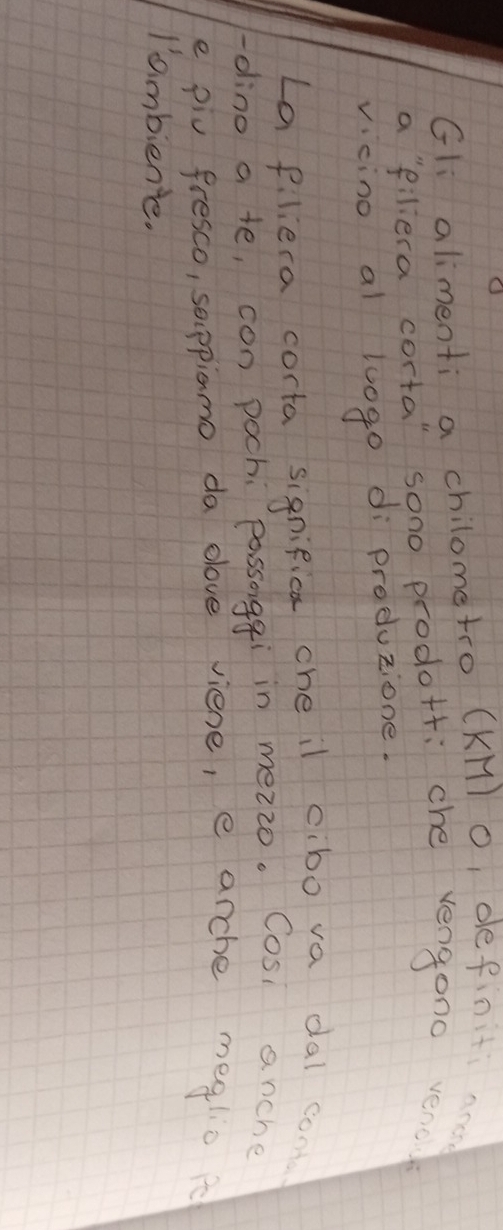 Gli alimenti a chilometro (KM) 0, definiti anche
a "filiera corta" sono prodotti che vengono venduti
vicino al luogo di produzione.
La filiera corta significa che il cibo va dal conta
-dino a te, con pochi passaggi in mezzo. Così anche
e piu fresco, sappiamo da dove viene, e anche meglio
l'ambiente.